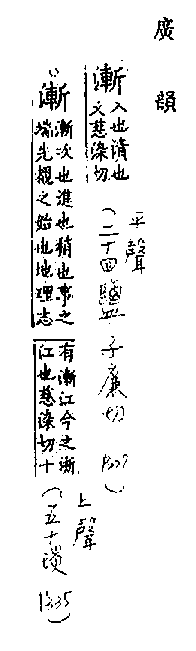 廣韻
漸 入也漬也
又慈染切
平聲
(二十四鹽 子廉切
○漸 漸次也進也稍也事之
端先覩之始也地理志
有漸江今之浙
江也慈染切十
上聲
(五十琰 1335)